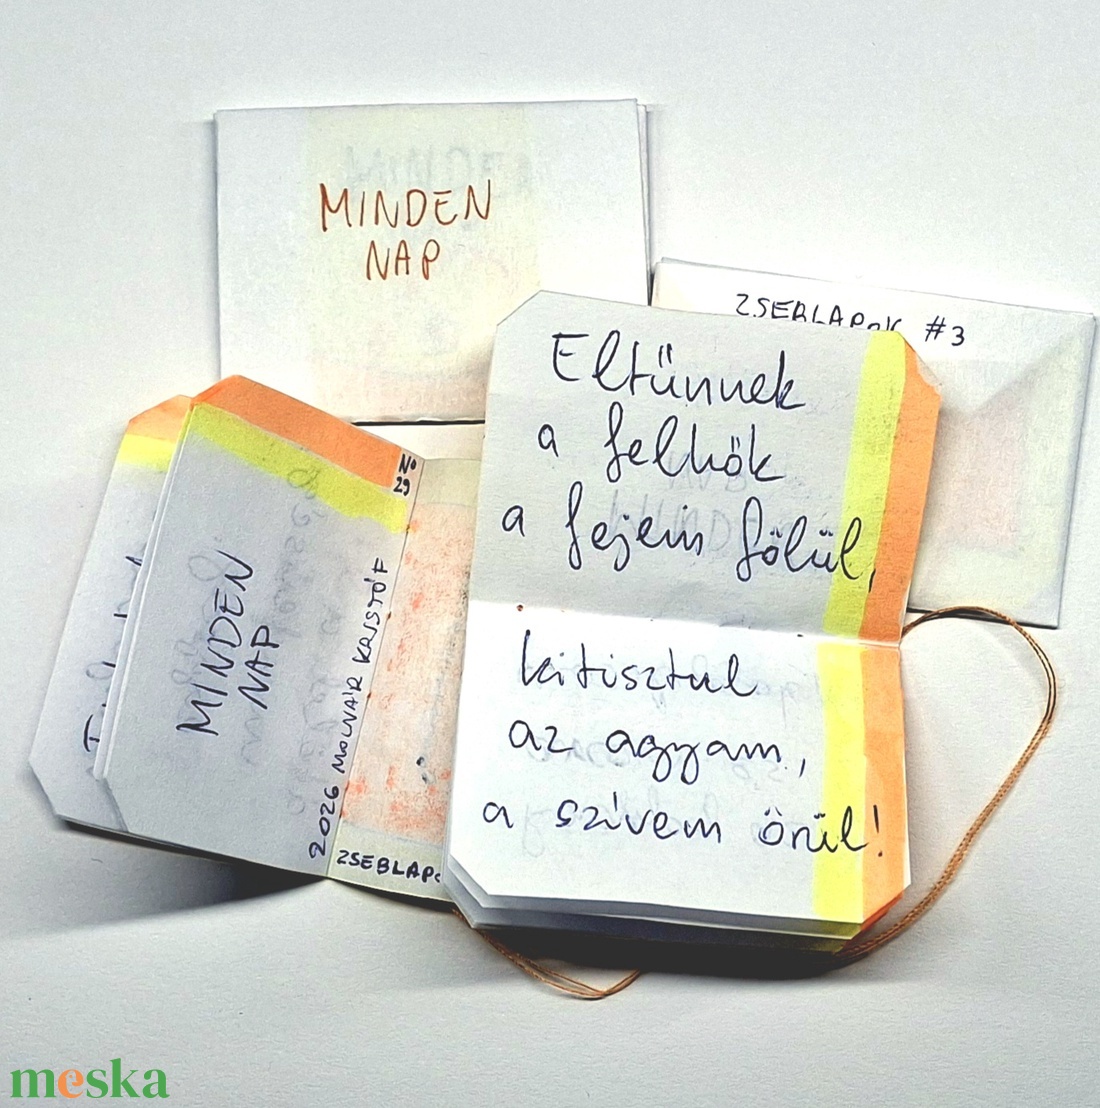 MINDEN
NAP
ZSEBLAPOK #3
Eltünnek
a felhők
a fejem fölül,
kitisztul
az agyam,
a szívem örül!
No
29
MINDEN
NAP
2026 MOLNÁR KRISTÓF
ZSEBLAPO
meska